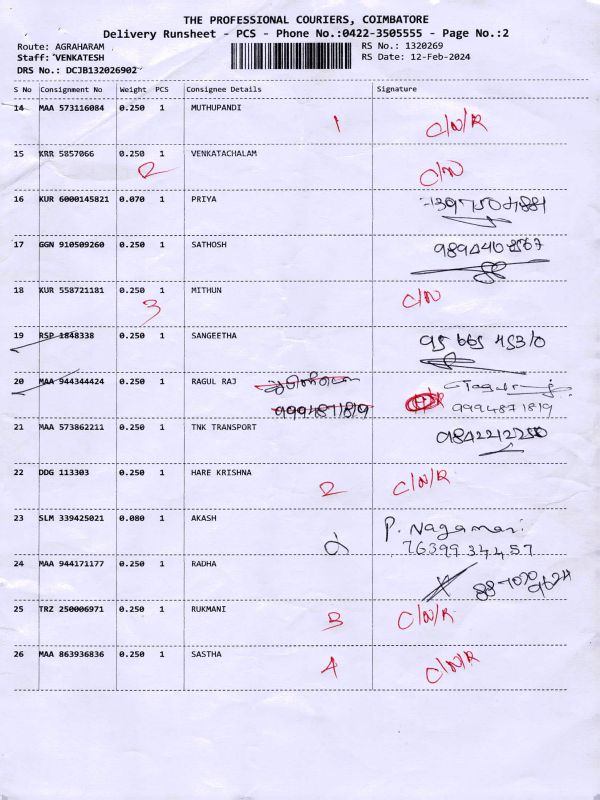 THE PROFESSIONAL COURIERS, COIMBATORE
Delivery Runsheet - PCS - Phone No.:0422-3505555 - Page No.:2
Route: AGRAHARAM RS No.: 1320269
Staff: VENKATESH RS Date: 12-Feb-2024
DRS No.: DCJB132026902
S No Consignment No Weight PCS Consignee Details Signature
14 MAA 573116084 0.250 1 MUTHUPANDI 1 C/N/R
15 KRR 5857066 0.250 1 VENKATACHALAM C/N
2
16 KUR 6000145821 0.070 1 PRIYA
17 GGN 910509260 0.250 1 SATHOSH 9894402567
18 KUR 558721181 0.250 1 MITHUN C/N
3
19 RSP 1848338 0.250 1 SANGEETHA 95 665 45310
20 MAA 944344424 0.250 1 RAGUL RAJ
9994871819 9994871819
21 MAA 573862211 0.250 1 TNK TRANSPORT 9842212250
22 DDG 113303 0.250 1 HARE KRISHNA 2 C/N/R
23 SLM 339425021 0.080 1 AKASH P. Nagamani
76399 34457
24 MAA 944171177 0.250 1 RADHA
25 TRZ 250006971 0.250 1 RUKMANI 3 C/N/R
26 MAA 863936836 0.250 1 SASTHA 4 C/N/R